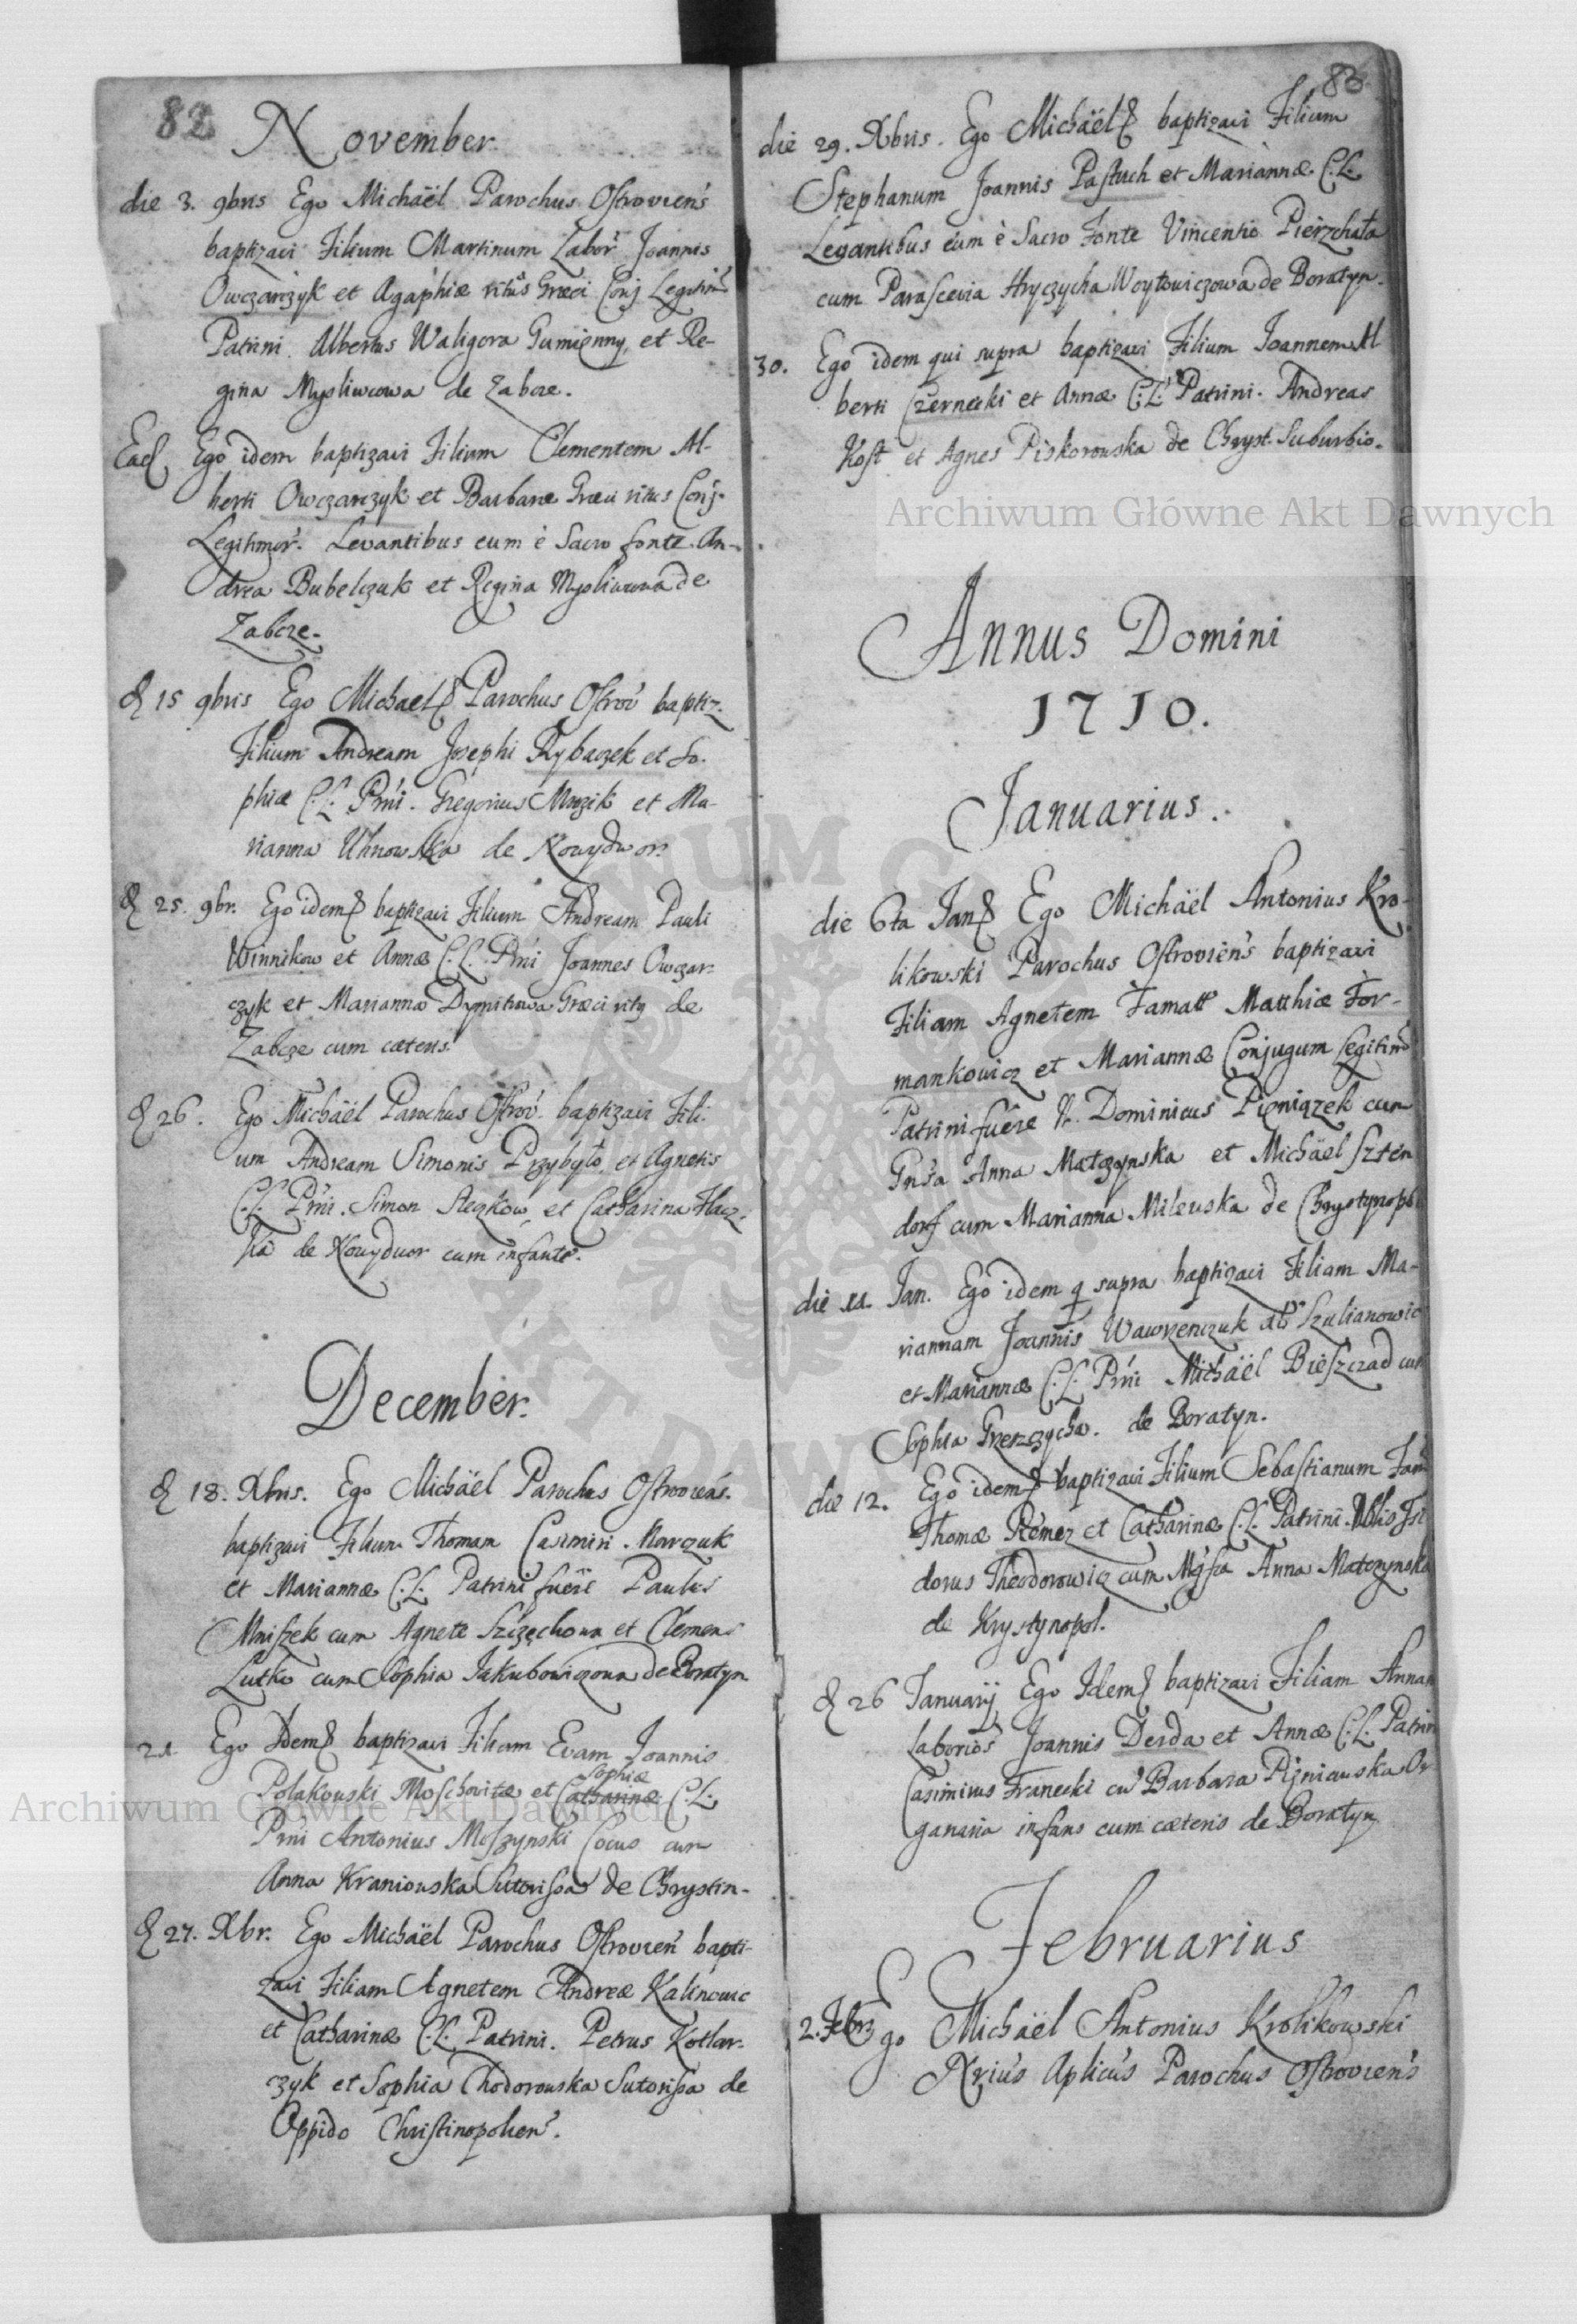 82
November.
die 3. 9bris Ego Michaël Parochus Ostroviens
baptizavi Filium Martinum Labor Joannis
Owczarczyk et Agaphiæ ritus Græci Conj Legitim
Patrini. Albertus Waligora Gumienny, et Re-
gina Mysliwcowa de Zabcze.
Ead Ego idem baptizavi Filium Clementem Al-
berti Owczarczyk et Barbaræ Græci ritus Conj.
Legitimor. Levantibus eum è Sacro fonte An-
drea Bubelczuk et Regina Mysliwcowa de
Zabcze.
d 15 9bris Ego Michael Parochus Ostrov baptiz.
Filium Andream Josephi Rybaczek et So-
phiæ C.L. Prni. Gregorius Mrozik et Ma-
rianna Uhnowska de Nowydwor.
d 25. 9br. Ego idem baptizavi Filium Andream Pauli
Winnikow et Annæ C.L. Prni Joannes Owczar-
czyk et Marianna Dymitrowa Græci ritq de
Zabcze cum cæteris.
d 26. Ego Michaël Parochus Ostrov baptizavi Fili-
um Andream Simonis Przybyło et Agnetis
C.L. Prni. Simon et Catharina
de Nowydwor cum infante.
December.
d 18. Xbris. Ego Michaël Parochus Ostroviens.
baptizavi Filium Thomam Casimiri Marczuk
et Mariannæ C.L. Patrini fuere Paulus
Mniszek cum Agnete et Clemens
Lutko cum Sophia Jakubowiczowa de Boratyn
21 Ego Idem baptizavi Filiam Evam Joannis
Sophiæ
Polakowski Moschovitæ et Catharinæ C.L.
Prni Antonius Moszynski Cocus cum
Anna Kraniowska Sutorissa de Chrystin-
d 27. Xbr. Ego Michaël Parochus Ostrovien bapti-
zavi Filiam Agnetem Andreæ Kalinowic
et Catharinæ C.L. Patrini. Petrus Kotlar-
czyk et Sophia Chodorowska Sutorissa de
Oppido Christinopolien.
83
die 29. Xbris. Ego Michaël baptizavi Filium
Stephanum Joannis Pastuch et Mariannæ C.L.
Levantibus eum è Sacro Fonte Vincentio Pierzchała
cum Parascevia Hryczycha Woytowiczowa de Boratyn.
30. Ego idem qui supra baptizavi Filium Joannem Al
berti Czernecki et Annæ C.L. Patrini. Andreas
Kost et Agnes Piskorowska de Chryst. Suburbio.
Archiwum Główne Akt Dawnych
Annus Domini
1710.
Januarius.
die 6ta Jan Ego Michaël Antonius Kro-
likowski Parochus Ostroviens baptizavi
Filiam Agnetem Famatt Matthiæ For-
mankowicz et Mariannæ Conjugum Legitim
Patrini fuere N. Dominicus Pieniążek cum
Gnsa Anna Matczynska et Michaël Szten
dorf cum Marianna Milewska de Chrystynopol
die 11. Jan. Ego idem q supra baptizavi Filiam Ma-
riannam Joannis Wawrzenczuk als Szulianowic
et Mariannæ C.L. Prni Michaël Bieszczad cum
Sophia Grzerzycha. de Boratyn.
die 12. Ego idem baptizavi Filium Sebastianum Fam
Thomæ Remez et Catharinæ C.L. Patrini. Nblis Isi
dorus Theodorowicz cum Mgfca Anna Matczynska
de Krystynopol.
d 26 Januarij Ego Idem baptizavi Filiam Annam
Laborios Joannis Derda et Annæ C.L. Patrin
Casimirus Franecki cu Barbara Pizniawska Or
ganaria infans cum cæteris de Boratyn
Februarius
2. Febr Ego Michaël Antonius Krolikowski
Nrius Aplicus Parochus Ostroviens
Archiwum Główne Akt Dawnych